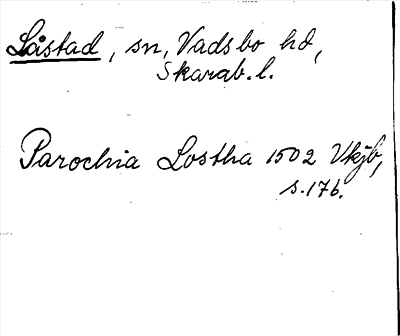 Låstad, sn, Vadsbo hd,
Skarab. l.
Parochia Lostha 1502 Vkjb,
s. 176.